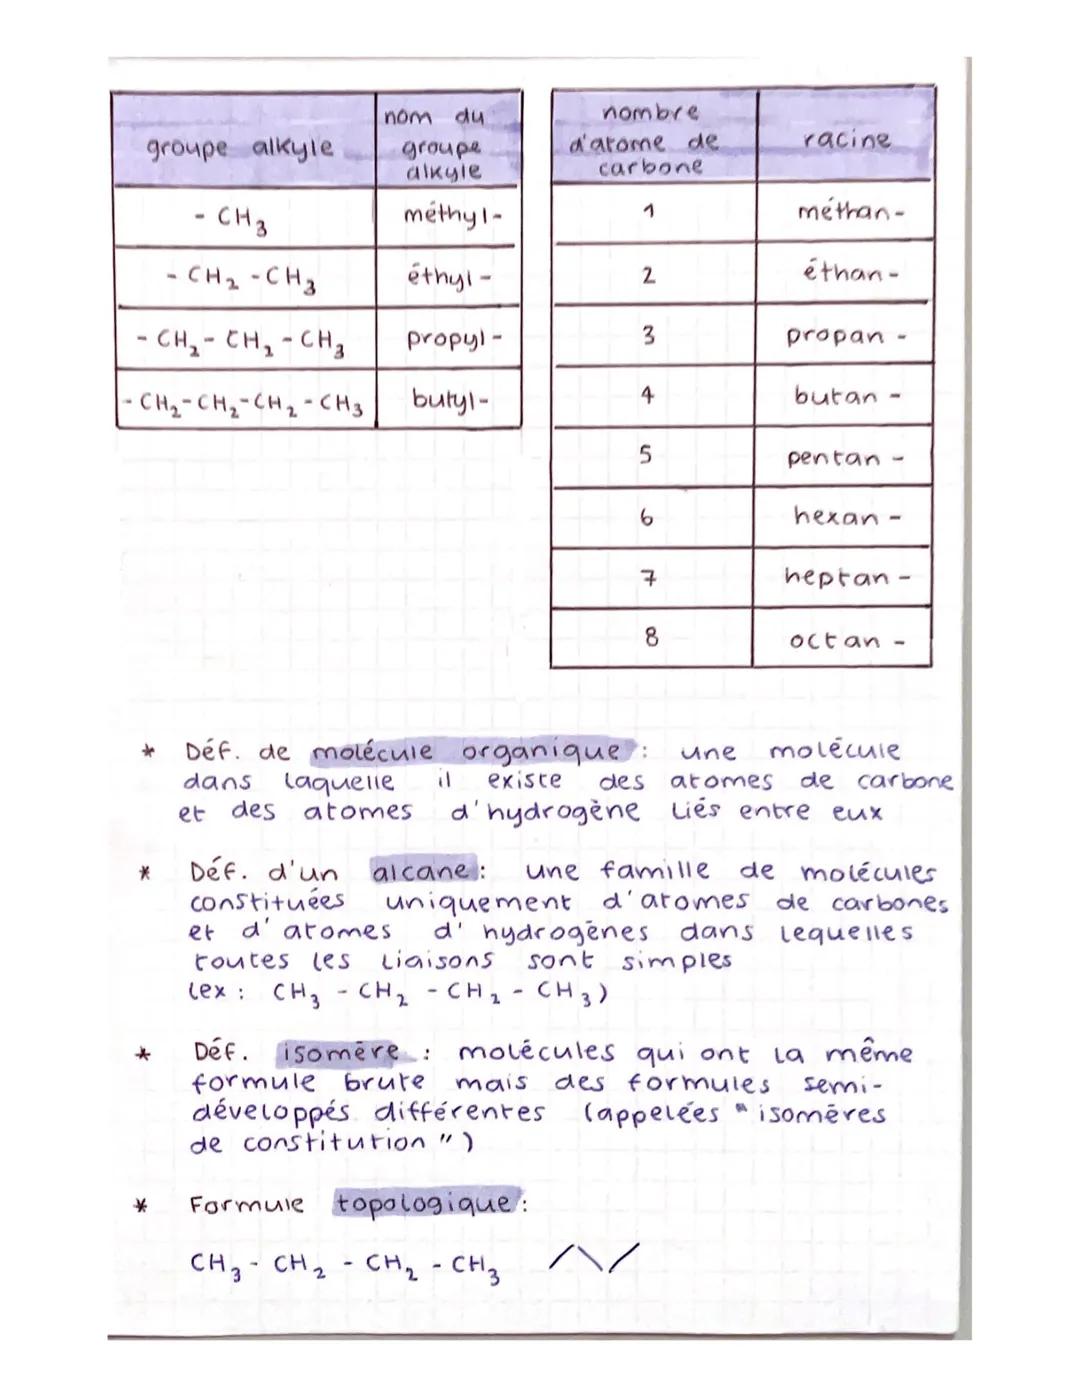 groupe alkyle
nom du
groupe
alkyle
- CH₃
méthyl-
- CH₂ - CH₃
éthyl-
- CH₂ - CH₂ - CH₃
propyl-
- CH₂ - CH₂ - CH₂ - CH₃
butyl-
nombre
d'atome de
carbone
racine
1
méthan-
2
éthan-
3
propan-
4
butan-
5
pentan-
6
hexan-
7
heptan-
8
octan-
* Déf. de molécule organique : une molécule
dans laquelle il existe des atomes de carbone
et des atomes d'hydrogène liés entre eux
* Déf. d'un alcane : une famille de molécules
constituées uniquement d'atomes de carbones
et d'atomes d'hydrogènes dans lequelles
toutes les liaisons sont simples
(ex : CH₃ - CH₂ - CH₂ - CH₃)
* Déf. isomère : molécules qui ont la même
formule brute mais des formules semi-
développés différentes (appelées "isomères
de constitution")
* Formule topologique :
CH₃ - CH₂ - CH₂ - CH₃